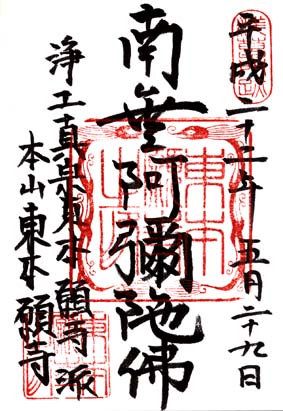 平成二十二年 五月二十九日
南無阿彌陀佛
浄土真宗東本願寺派
本山東本願寺